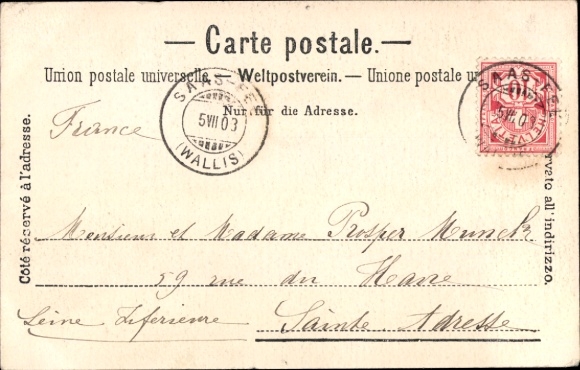 — Carte postale. —
Union postale universelle. — Weltpostverein. — Unione postale un
Nur für die Adresse.
SAAS-FEE
5 VII 03
(WALLIS)
SAAS-FEE
5 VII 03
HELVETIA
10
France
Côté réservé à l'adresse.
rvato all'indirizzo.
Monsieur et Madame Prosper Munck
59 rue du Havre
Seine Inferieure
Sainte Adresse